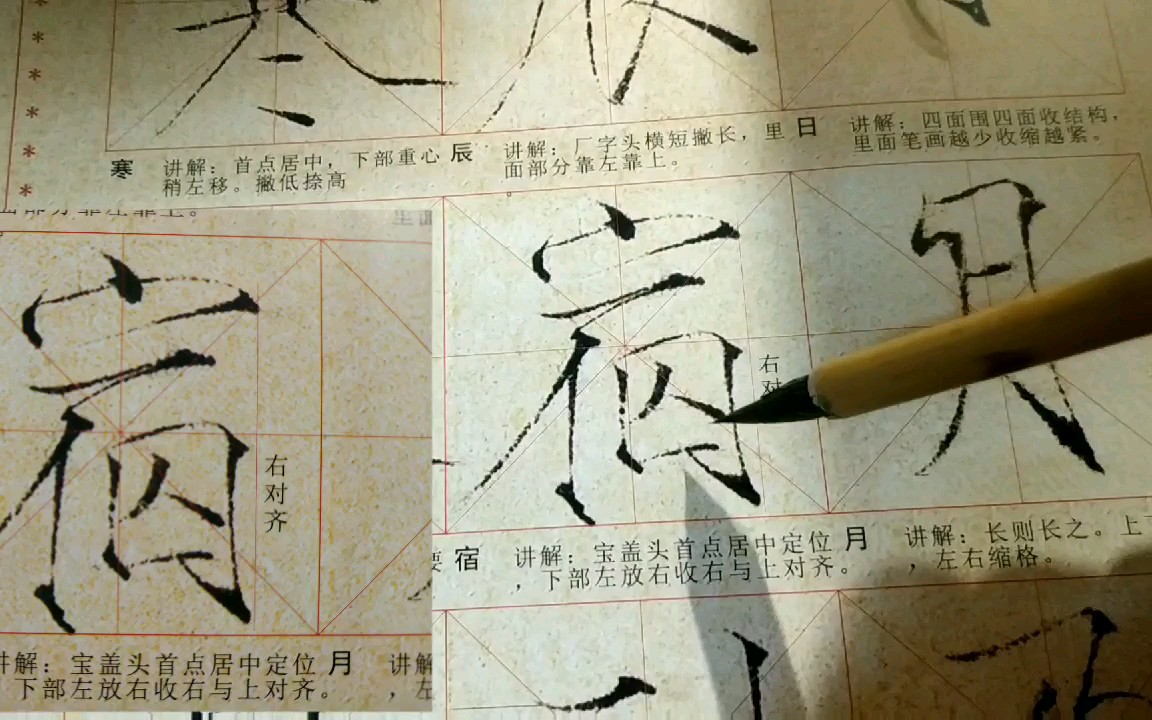 寒
讲解：首点居中，下部重心
稍左移。撇低捺高
辰
讲解：厂字头横短撇长，里
面部分靠左靠上。
日
讲解：四面围四面收结构，
里面笔画越少收缩越紧。
宿
右对
宿
讲解：宝盖头首点居中定位
，下部左放右收右与上对齐。
月
讲解：长则长之。上
，左右缩格。
宿
右对齐
讲解：宝盖头首点居中定位
下部左放右收右与上对齐。
月
讲解
，左